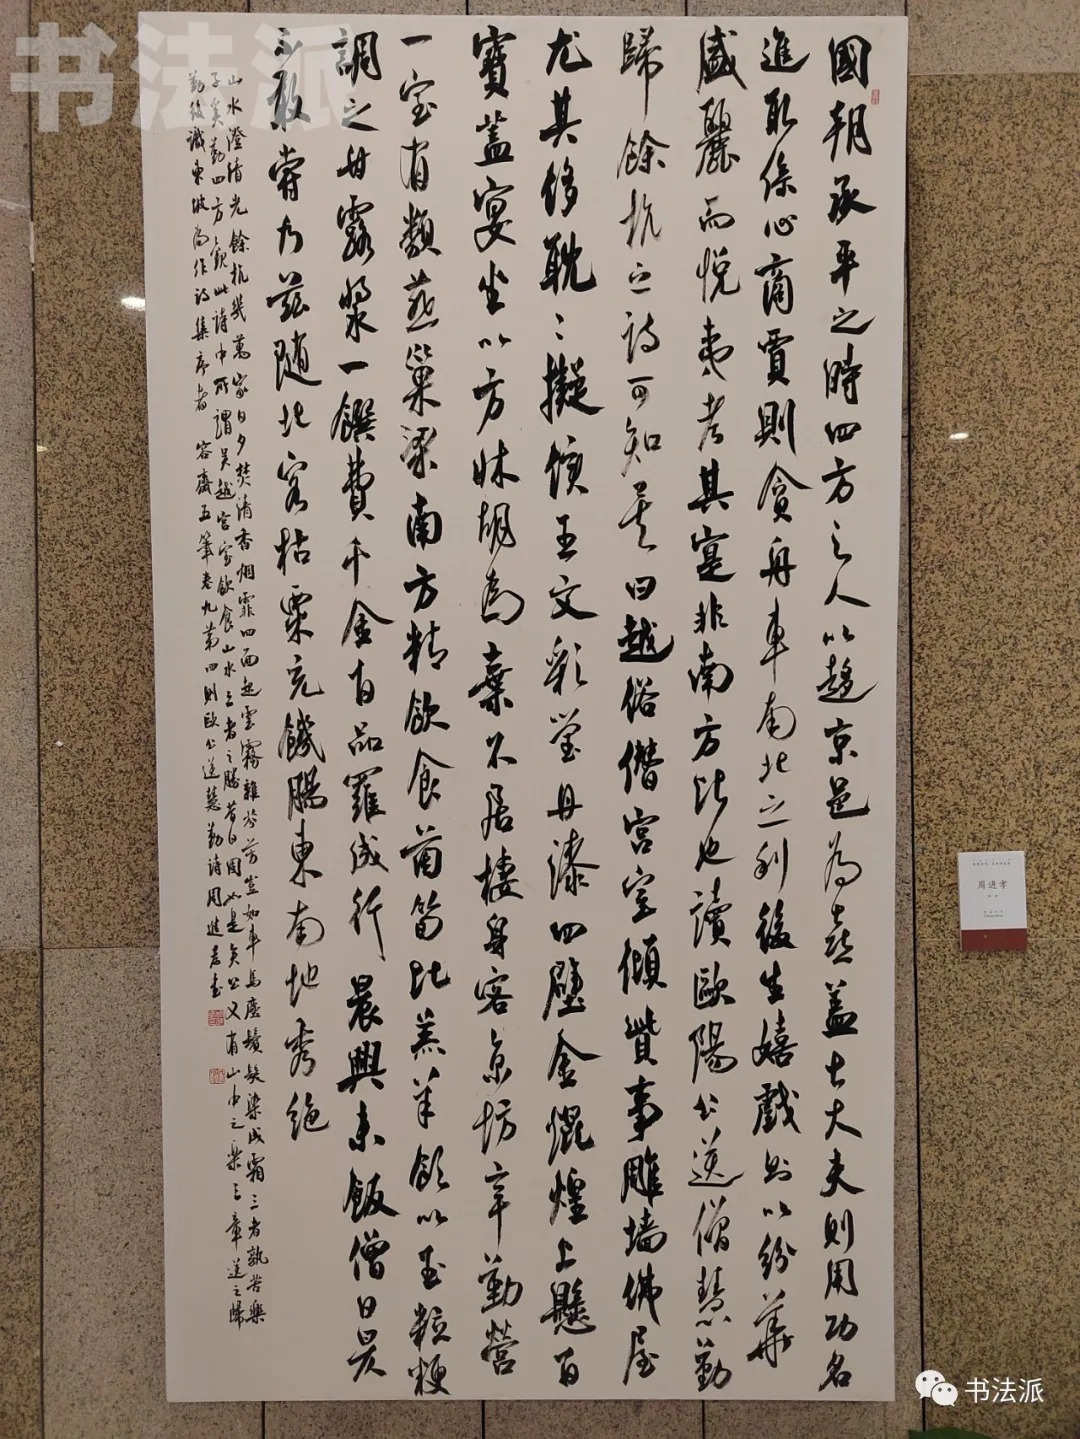 國朝承平之時四方之人以趨京邑為喜蓋士大夫則用功名
進取係心商賈則貪舟車南北之利後生嬉戲則以紛華
盛麗而悅夷考其實非南方比也讀歐陽公送僧慧勤
歸餘杭之詩可知矣曰越俗僭宮室傾貲事雕墻佛屋
尤其侈耽耽擬侯王文彩瑩丹漆四壁金焜煌上懸百
寶蓋宴坐以方牀胡為棄不居棲身客京坊辛勤營
一室有類燕巢梁南方精飲食菌筍比羔羊飯以玉粒粳
調之甘露漿一饌費千金百品羅成行晨興未飯僧日昃
不敢嘗乃茲隨北客枯粟充饑腸東南地秀絕
山水澄清光餘杭幾萬家日夕焚清香烟霏四面起雲霧雜芬芳豈如車馬塵鬢髮染成霜三者孰苦樂
子奚勤四方觀此詩中所謂吳越宮室飲食山水三者之勝昔日固如是矣公又有山中之樂三章送之歸
勤後識東坡為作詩集序者 容齋五筆卷九第四則歐公送慧勤詩周進孝書
周进孝
书法派
书法派